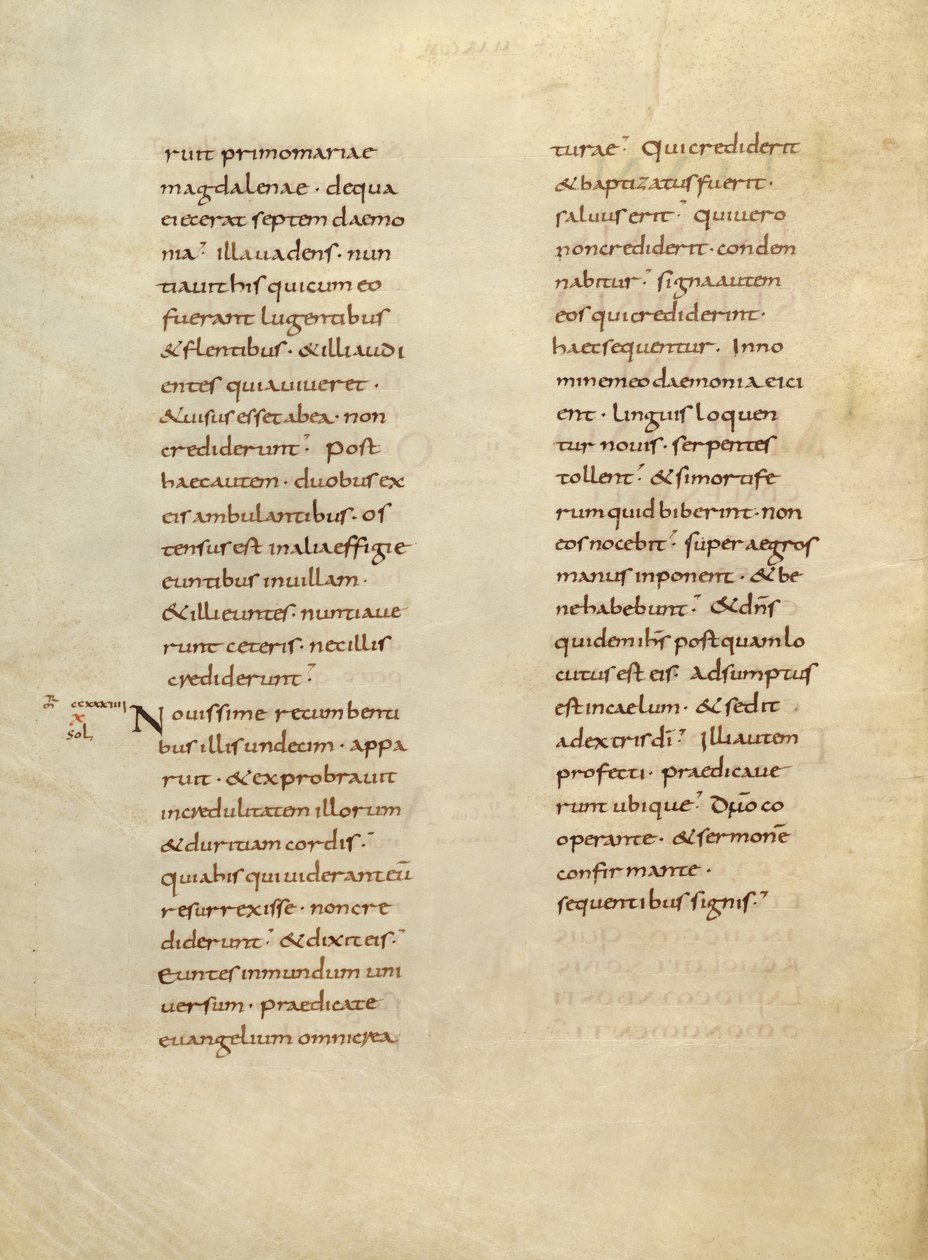 ruit primo mariae
magdalenae · de qua
eiecerat septem daemo
nia · illa vadens · nun
tiavit his qui cum eo
fuerant lugentibus
& flentibus · & illi audi
entes quia viveret ·
& visus esset ab ea · non
crediderunt · Post
haec autem · duobus ex
eis ambulantibus · os
tensus est in alia effigie
euntibus in villam ·
& illi euntes · nuntiave
runt ceteris · nec illis
crediderunt ·
ccxxxiiii
x
sol
Novissime recumbenti
bus illis undecim · appa
ruit · & exprobravit
incredulitatem illorum
& duritiam cordis ·
quia his qui viderant eū
resurrexisse · non cre
diderunt · & dixit eis ·
Euntes in mundum uni
versum · praedicate
evangelium omni crea
turae · Qui crediderit
& baptizatus fuerit ·
salvus erit · qui vero
non crediderit · condem
nabitur · signa autem
eos qui crediderint ·
haec sequentur · In no
mine meo daemonia eici
ent · linguis loquen
tur novis · serpentes
tollent · & si mortife
rum quid biberint · non
eos nocebit · super aegros
manus inponent · & be
ne habebunt · & dn̄s
quidem ih̄s postquam lo
cutus est eis · adsumptus
est in caelum · & sedit
a dextris dī · Illi autem
profecti · praedicave
runt ubique · Dn̄o co
operante · & sermonē
confirmante ·
sequentibus signis ·